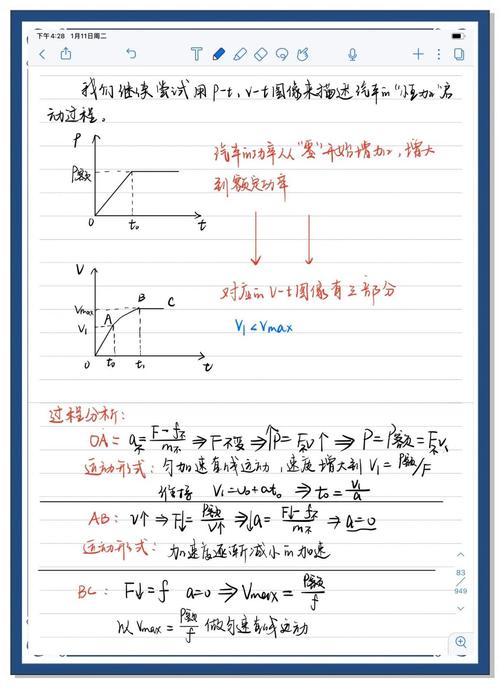 下午4:28 1月11日周二
我们继续尝试用P-t, v-t图像来描述汽车的"恒力"启
动过程。
P
P额
0 t₀ t
汽车的功率从"零"开始增加, 增大
到额定功率
V
Vmax
V₁
A B C
0 t₀ t₁ t
对应的V-t图像有三部分
V₁<Vmax
过程分析:
OA: a不=F-f不/m不 ⇒ F不变 ⇒ ↑P=F不v↑ ⇒ P=P额=F不v₁
运动形式: 匀加速直线运动, 速度增大到V₁=P额/F
V₁=v₀+at₀ ⇒ t₀=v₁/a
AB: v↑ ⇒ F↓=P额/v↑ ⇒ ↓a=F↓-f不/m不 ⇒ a=0
运动形式: 加速度逐渐减小的加速
BC: F↓=f a=0 ⇒ Vmax=P额/f
以Vmax=P额/f 做匀速直线运动
83
949